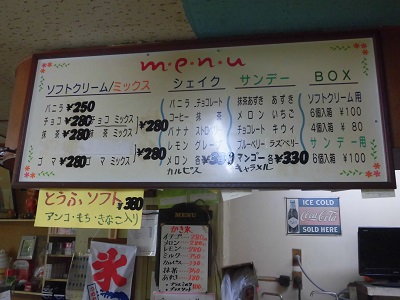 menu
ソフトクリーム/ミックス
バニラ ¥250
チョコ ¥280 チョコ ミックス ¥280
抹茶 ¥280 抹茶 ミックス ¥280
ゴマ ¥280 ゴマ ミックス ¥280
シェイク
バニラ チョコレート
コーヒー 抹茶
バナナ
レモン
メロン 各¥330
カルピス
サンデー
抹茶あずき あずき
メロン いちご
チョコレート キウイ
ブルーベリー ラズベリー
マンゴー 各¥330
キャラメル
BOX
ソフトクリーム用
6個入用 ¥100
4個入用 ¥80
サンデー用
6個入用 ¥100
とうふソフト ¥380
アンコ・もち・きなこ入り
氷
MENU
かき氷
イチゴ
メロン
レモン
ミルク
抹茶
ICE COLD
Coca-Cola
SOLD HERE